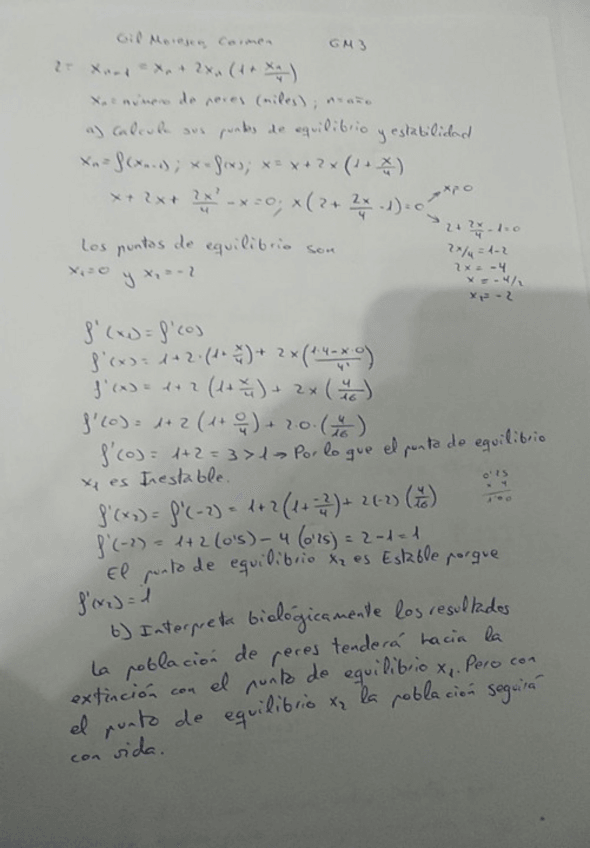 Gil Moreson, Carmen GM3
2= x_{n+1} = x_n + 2x_n (1 + x_n/4)
x_n = número de peces (miles); n = año
a) Calcula sus puntos de equilibrio y estabilidad
x_n = f(x_{n-1}); x = f(x); x = x + 2x (1 + x/4)
x + 2x + 2x²/4 - x = 0; x (2 + 2x/4 - 1) = 0 → x = 0
2 + 2x/4 - 1 = 0
2x/4 = 1 - 2
2x = -4
x = -4/2
x₂ = -2
Los puntos de equilibrio son
x₁ = 0 y x₂ = -2
f'(x₁) = f'(0)
f'(x) = 1 + 2·(1 + x/4) + 2x ((1·4 - x·0)/4²)
f'(x) = 1 + 2 (1 + x/4) + 2x (4/16)
f'(0) = 1 + 2 (1 + 0/4) + 2·0·(4/16)
f'(0) = 1 + 2 = 3 > 1 → Por lo que el punto de equilibrio
x₁ es Inestable.
f'(x₂) = f'(-2) = 1 + 2 (1 + -2/4) + 2(-2) (4/16)
0'25
x 4
1'00
f'(-2) = 1 + 2 (0'5) - 4 (0'25) = 2 - 1 = 1
El punto de equilibrio x₂ es Estable porque
f'(x₂) = 1
b) Interpreta biológicamente los resultados
La población de peces tenderá hacia la
extinción con el punto de equilibrio x₁. Pero con
el punto de equilibrio x₂ la población seguirá
con vida.